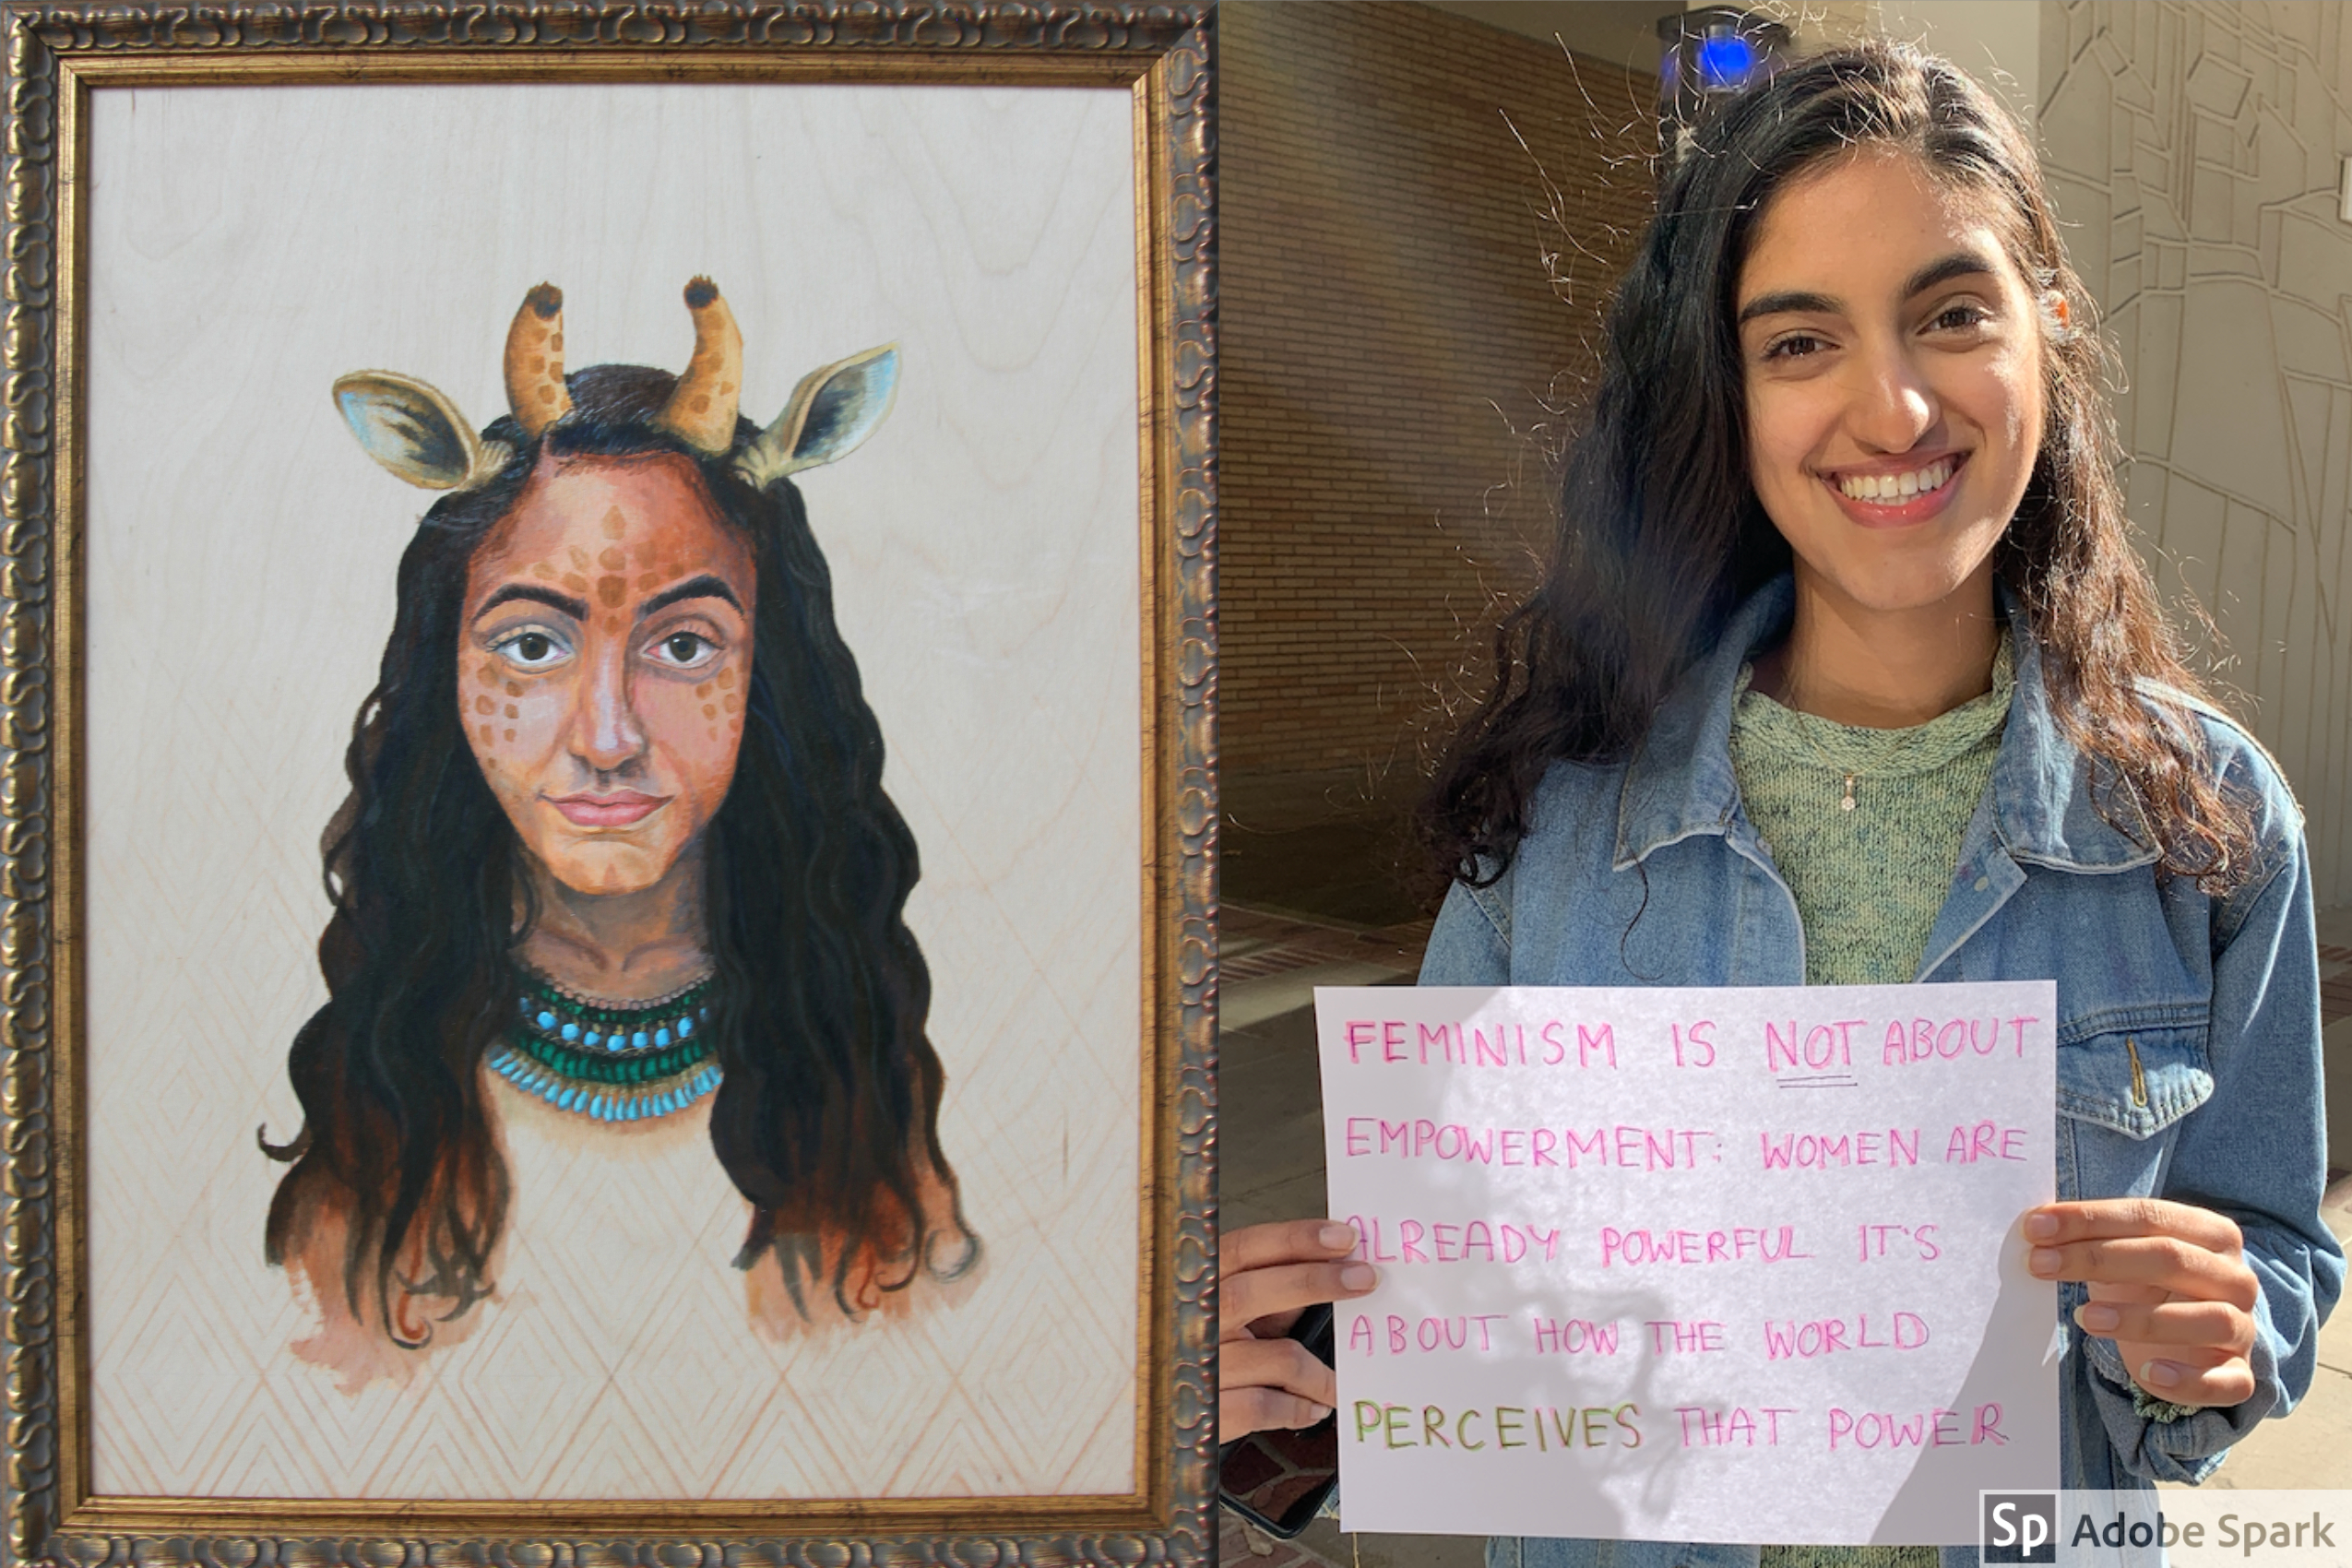 FEMINISM IS NOT ABOUT
EMPOWERMENT: WOMEN ARE
ALREADY POWERFUL IT'S
ABOUT HOW THE WORLD
PERCEIVES THAT POWER
Sp Adobe Spark